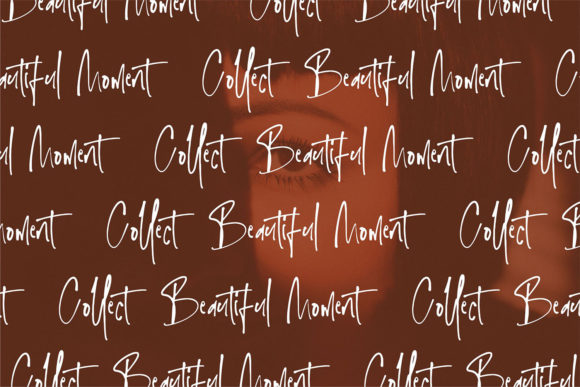 Beautiful Moment Collect Beautiful Moment
eautiful Moment Collect Beautiful Moment C
ul Moment Collect Beautiful Moment Collec
oment Collect Beautiful Moment Collect B
t Collect Beautiful Moment Collect Beaut
Collect Beautiful Moment Collect Beautiful